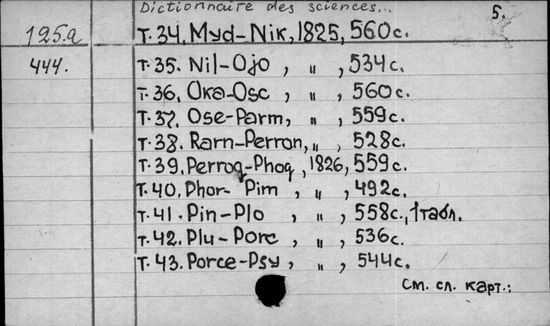 Dictionnaire des sciences... 5.
125.a т.34. Myd-Nik, 1825, 560с.
444. т.35. Nil-Ojo, ", 534с.
т.36. Oka-Osc, ", 560с.
т.37. Ose-Parm, ", 559с.
т.38. Rarn-Perron, ", 528с.
т.39. Perroq-Phoq, 1826, 559с.
т.40. Phor- Pim, ", 492с.
т.41. Pin-Plo, ", 558с., 1 табл.
т.42. Plu-Porc, ", 536с.
т.43. Porce-Psy, ", 544с.
См. сл. карт.: